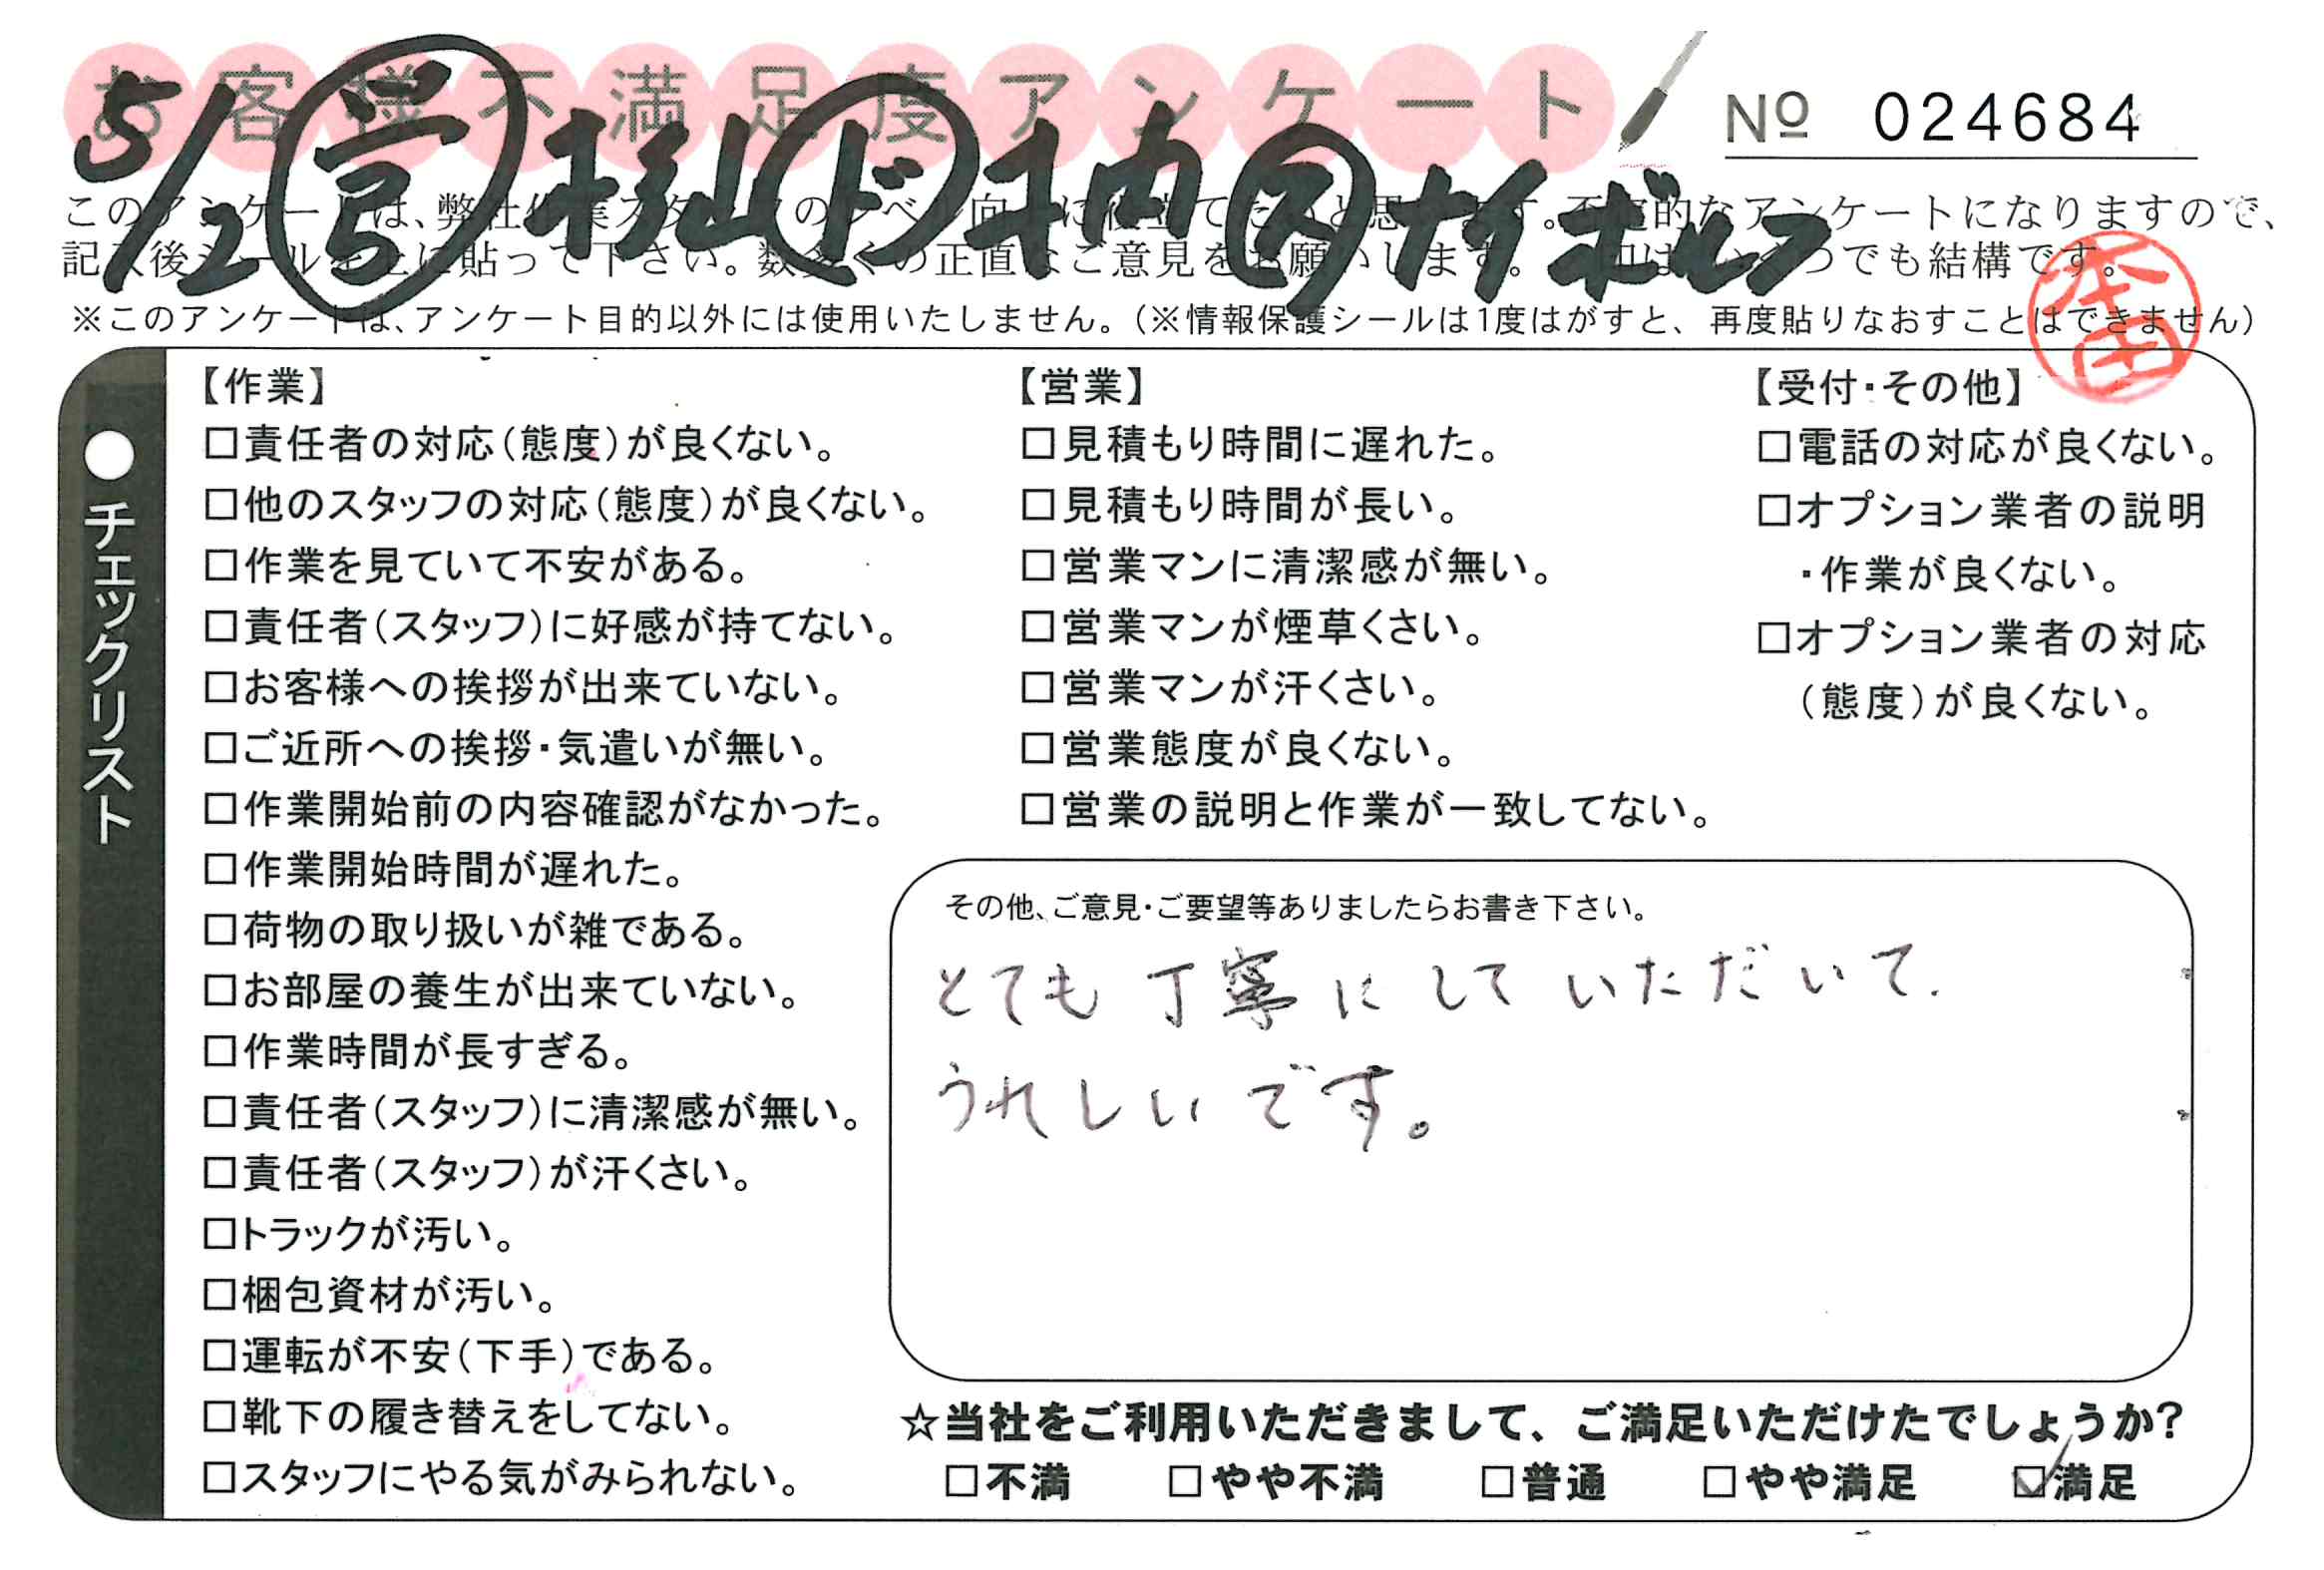 お客様不満足度アンケート
№ 024684
5/2 営 杉山 ド 柚 ス ナイボルフ
このアンケートは、弊社作業スタッフのレベル向上に役立てたいと思います。不定的なアンケートになりますので、
記入後シールを上に貼って下さい。数多くの正直なご意見をお願いします。 印はいくつでも結構です。
※このアンケートは、アンケート目的以外には使用いたしません。(※情報保護シールは1度はがすと、再度貼りなおすことはできません)
本田
●チェックリスト
【作業】
□責任者の対応(態度)が良くない。
□他のスタッフの対応(態度)が良くない。
□作業を見ていて不安がある。
□責任者(スタッフ)に好感が持てない。
□お客様への挨拶が出来ていない。
□ご近所への挨拶・気遣いが無い。
□作業開始前の内容確認がなかった。
□作業開始時間が遅れた。
□荷物の取り扱いが雑である。
□お部屋の養生が出来ていない。
□作業時間が長すぎる。
□責任者(スタッフ)に清潔感が無い。
□責任者(スタッフ)が汗くさい。
□トラックが汚い。
□梱包資材が汚い。
□運転が不安(下手)である。
□靴下の履き替えをしてない。
□スタッフにやる気がみられない。
【営業】
□見積もり時間に遅れた。
□見積もり時間が長い。
□営業マンに清潔感が無い。
□営業マンが煙草くさい。
□営業マンが汗くさい。
□営業態度が良くない。
□営業の説明と作業が一致してない。
【受付・その他】
□電話の対応が良くない。
□オプション業者の説明
・作業が良くない。
□オプション業者の対応
(態度)が良くない。
その他、ご意見・ご要望等ありましたらお書き下さい。
とても丁寧にしていただいて.
うれしいです。
☆当社をご利用いただきまして、ご満足いただけたでしょうか?
□不満 □やや不満 □普通 □やや満足 ☑満足